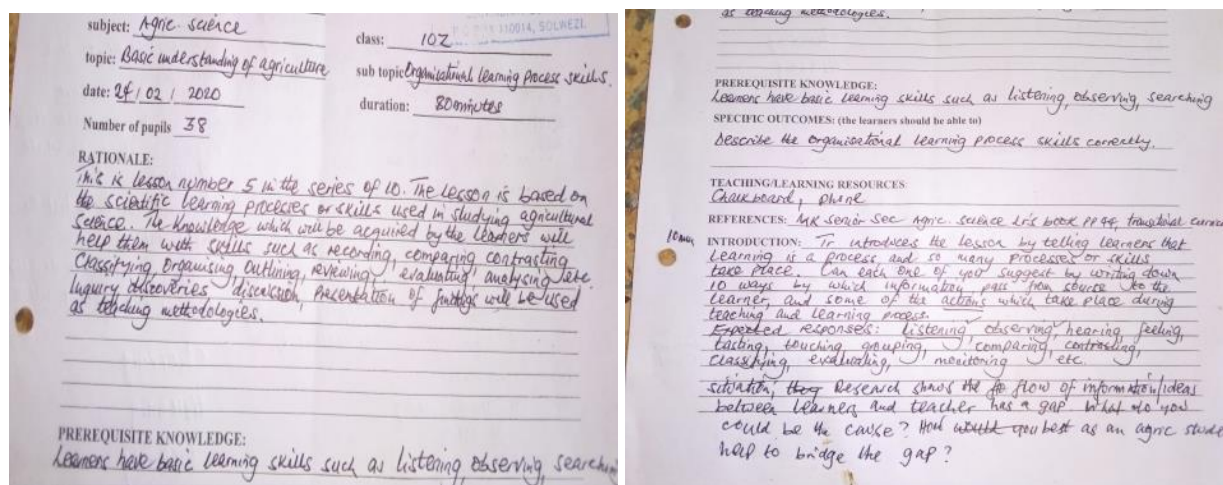 subject: Agric. science
class: 10Z
110014, SOLWEZI
topic: Basic understanding of agriculture
sub topic Organisational learning process skills.
date: 24 / 02 / 2020
duration: 80 minutes
Number of pupils 38
RATIONALE:
This is lesson number 5 in the series of 10. The lesson is based on
the scientific learning processes or skills used in studying agricultural
science. The knowledge which will be acquired by the learners will
help them with skills such as recording, comparing contrasting
classifying, organising outlining, reviewing, evaluating, analysing etc.
Inquiry discoveries, discussion, presentation of findings will be used
as teaching methodologies.
PREREQUISITE KNOWLEDGE:
Learners have basic learning skills such as listening, observing, searching
as teaching methodologies.
PREREQUISITE KNOWLEDGE:
Learners have basic learning skills such as listening, observing, searching
SPECIFIC OUTCOMES: (the learners should be able to)
Describe the organisational learning process skills correctly.
TEACHING/LEARNING RESOURCES:
Chalkboard, phone
REFERENCES: MK senior Sec Agric. science Lr's book pp 44,
10 min INTRODUCTION: Tr introduces the lesson by telling learners that
learning is a process and so many processes or skills
take place. Can each one of you suggest by writing down
10 ways by which information pass from source to the
learner, and some of the actions which take place during
teaching and learning process.
Expected responses: listening, observing, hearing, feeling,
tasting, touching, grouping, comparing contrasting,
classifying, evaluating, monitoring, etc.
situation, they Research shows the flow of information/ideas
between learner and teacher has a gap. What do you
could be the cause? How would you best as an agric
help to bridge the gap?